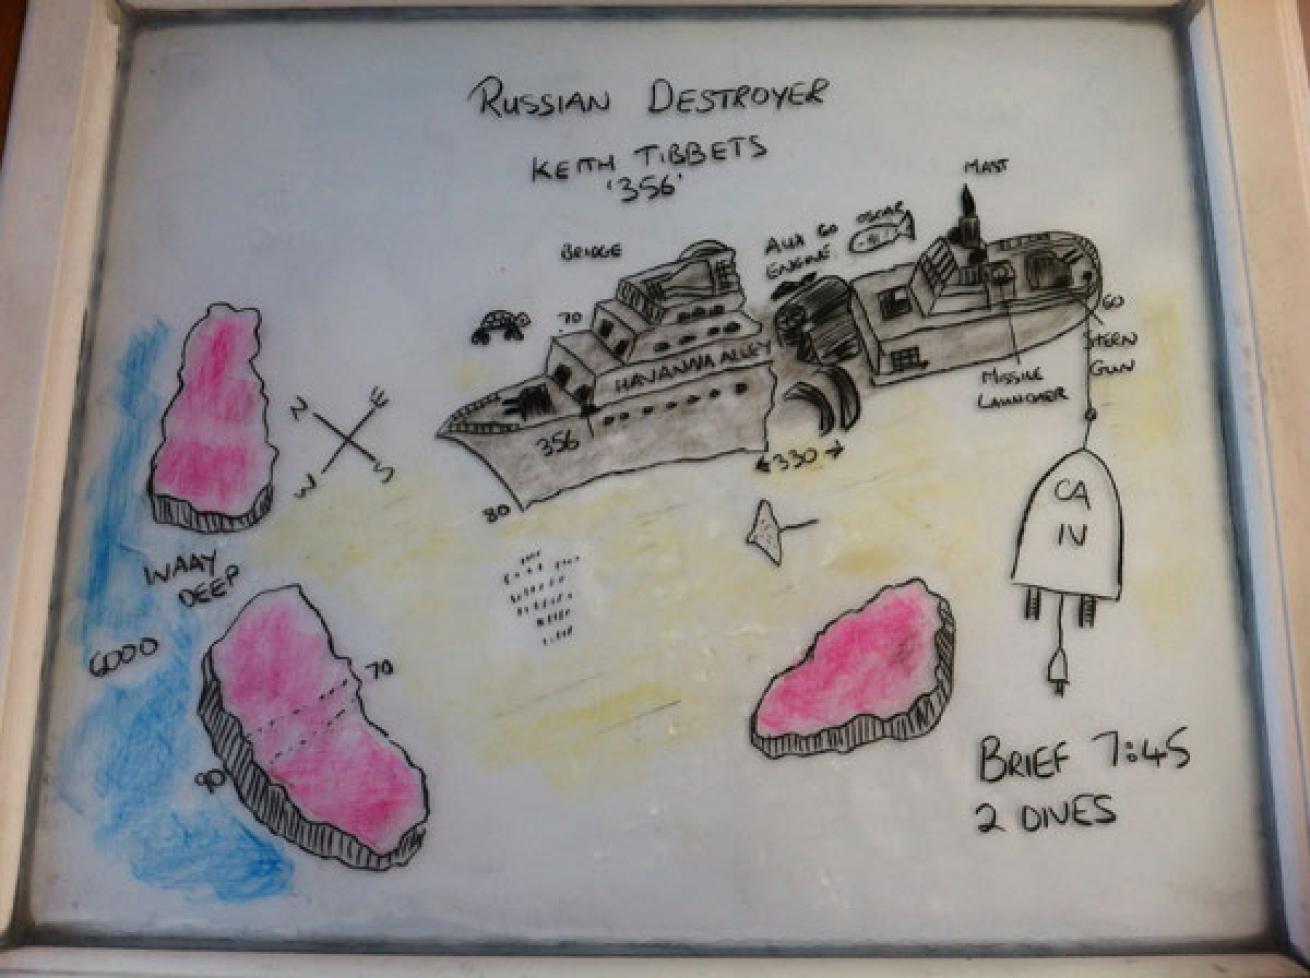 RUSSIAN DESTROYER
KEITH TIBBETS
'356'
MAST
BRIDGE
AUX GO
ENGINE
OSCAR
70
HAVANNA ALLEY
60
STERN
GUN
MISSILE
LAUNCHER
356
330
80
N
E
W
S
CA
IV
WAAY
DEEP
6000
70
90
BRIEF 7:45
2 DIVES